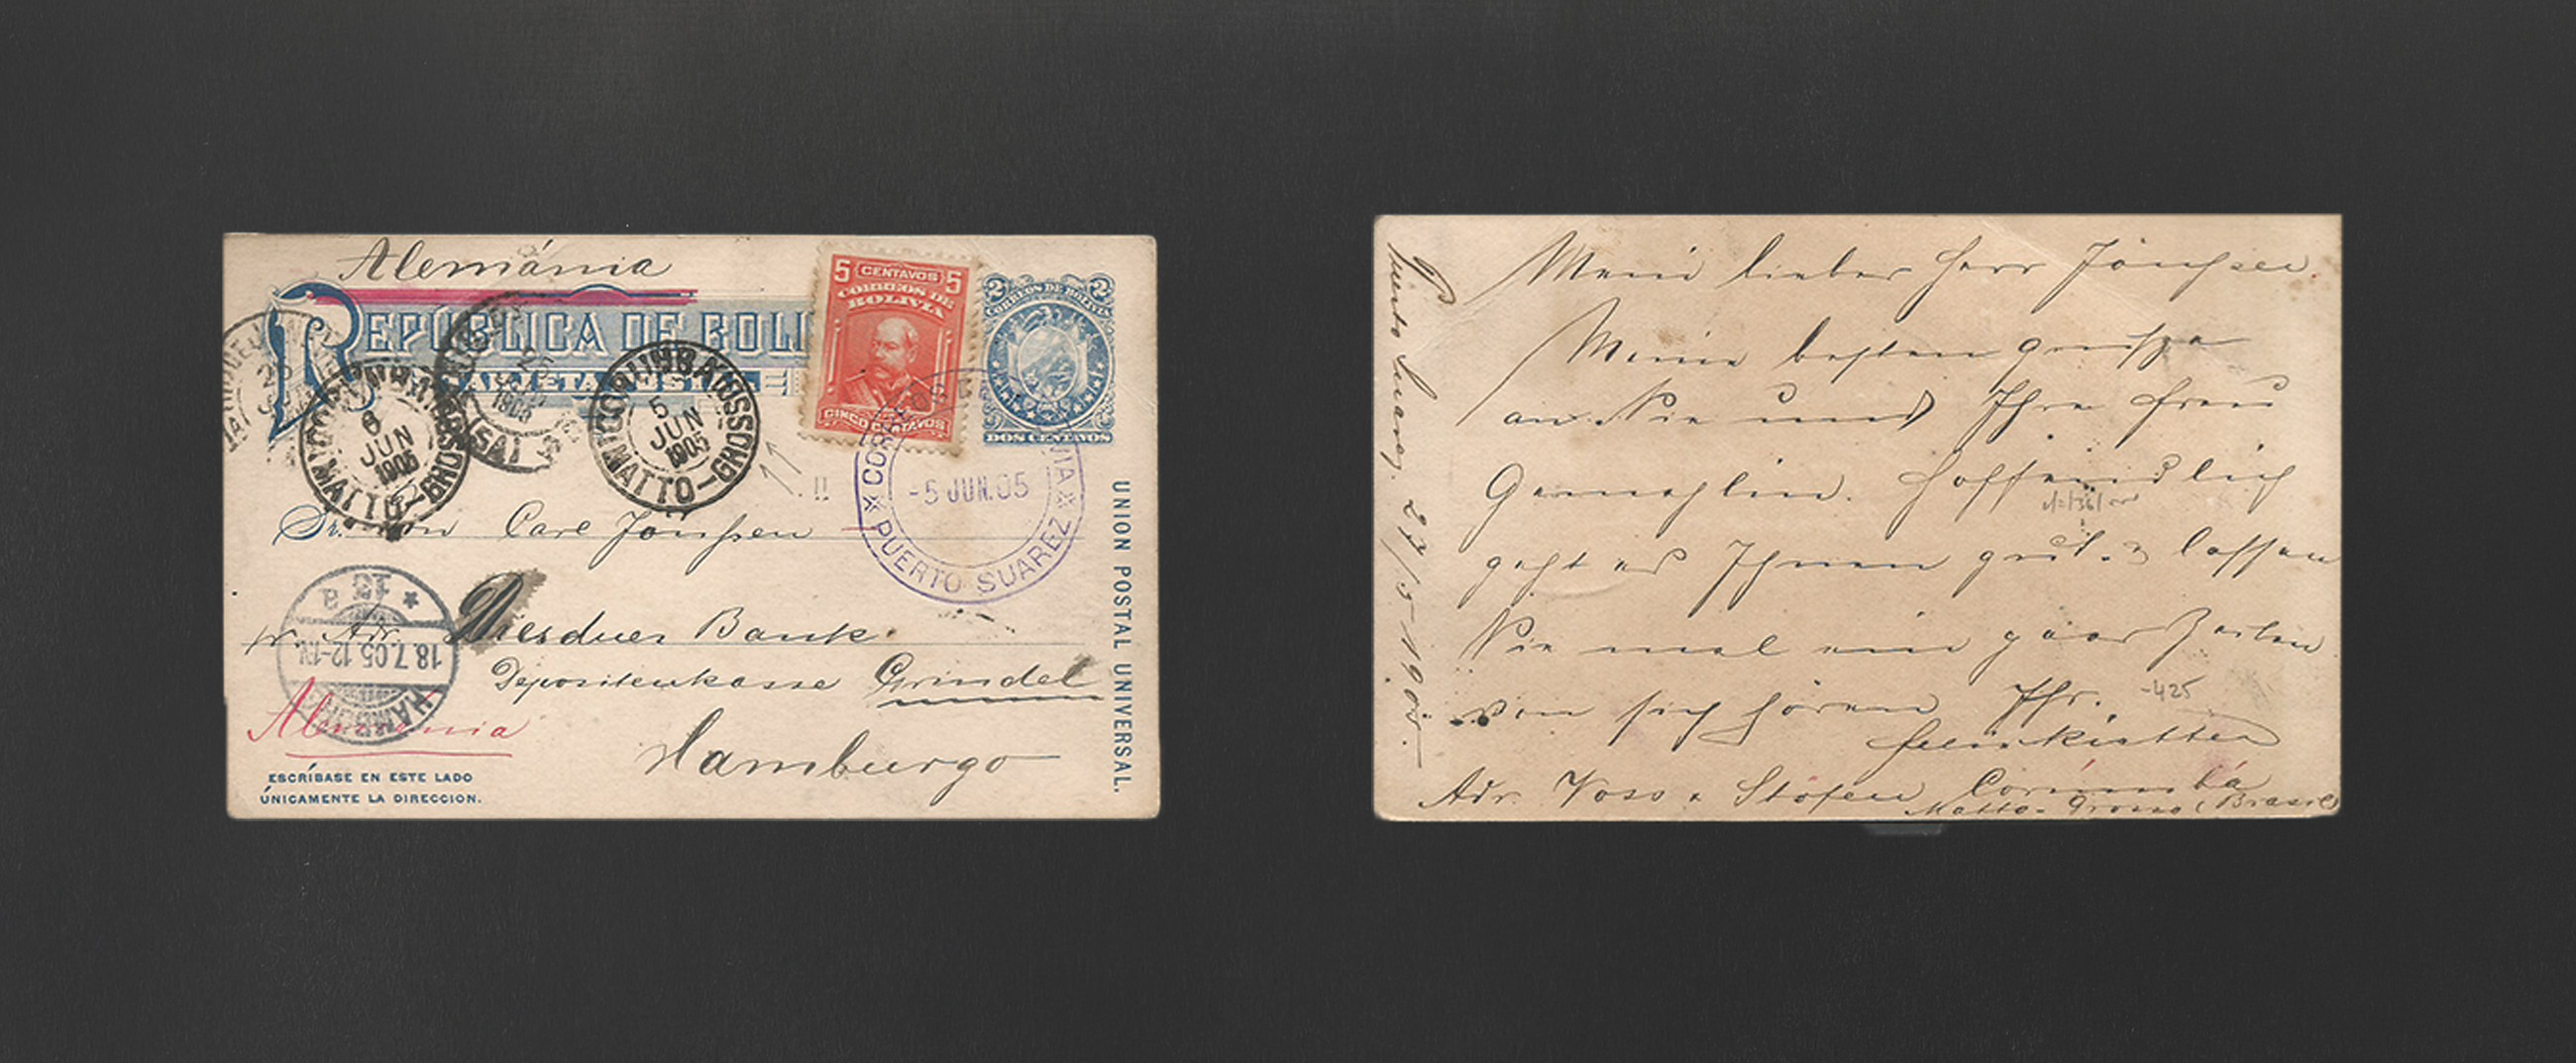 Alemánia
REPÚBLICA DE BOLI
TARJETA POSTAL
5 CENTAVOS 5
CORREOS DE
BOLIVIA
CINCO CENTAVOS
2 CORREOS DE BOLIVIA 2
DOS CENTAVOS
25
1905
CORUMBÁ
6
JUN
1905
MATTO-GROSSO
CORUMBÁ
5
JUN
1905
MATTO-GROSSO
!!
CORREOS BOLIVIA
-5 JUN.05
PUERTO SUAREZ
Sr. Carl Jönssen
pr. Adr. Dresdner Bank
Depositenkasse Grindel
Hamburgo
HAMBURG
18.7.05.12-1N.
Alemania
ESCRÍBASE EN ESTE LADO
ÚNICAMENTE LA DIRECCION.
UNION POSTAL UNIVERSAL.
Puerto Suarez 27/5 1905.
Mein lieber Herr Jönssen.
Meine besten Grüsse
an Sie und Ihre Frau
Gemahlin. Hoffendlich
geht es Ihnen gut. lassen
Sie mal ein paar Zeilen
von sich hören Ihr.
-425
Adr. Voss & Stöfen Corumbá
Matto-Grosso (Brasil)